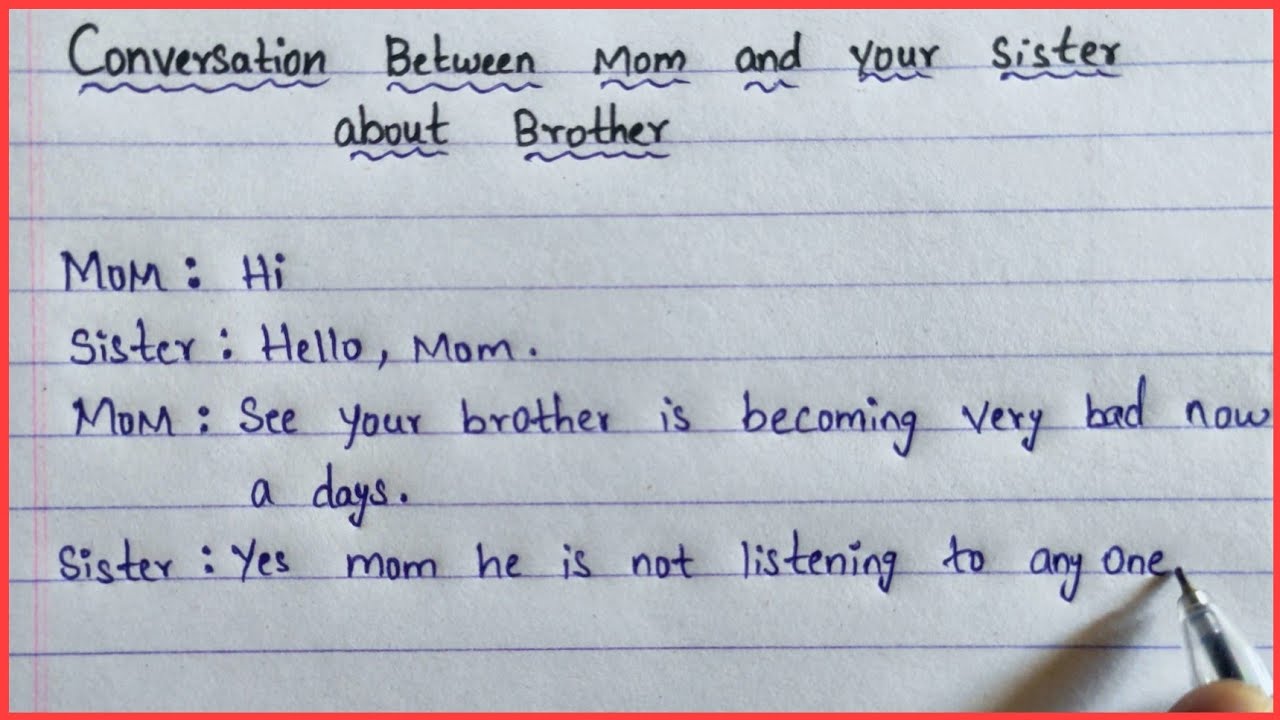 Conversation Between Mom and your Sister
about Brother
Mom : Hi
Sister : Hello, Mom.
Mom : See your brother is becoming very bad now
a days.
Sister : Yes mom he is not listening to any one.